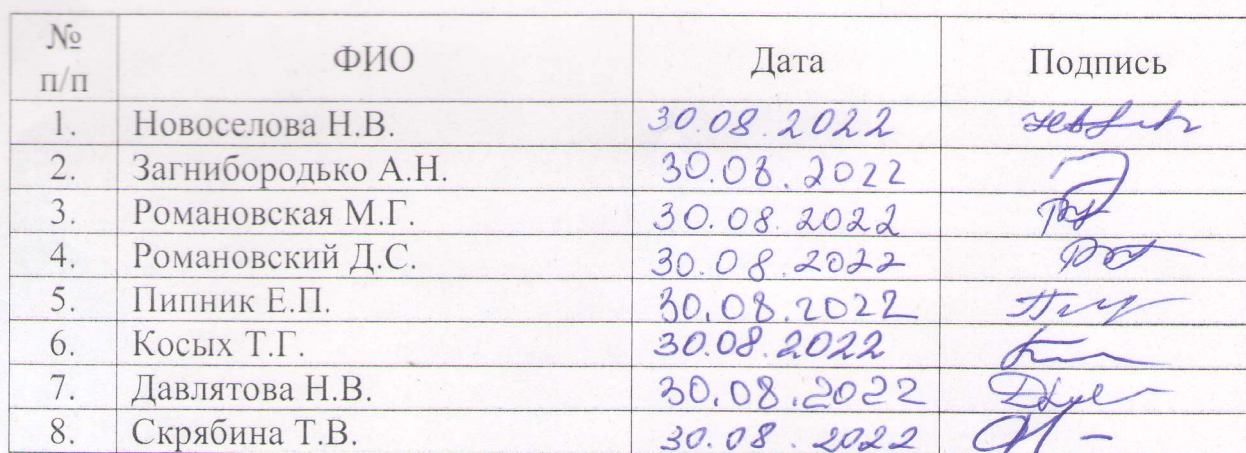 № п/п ФИО Дата Подпись
1. Новоселова Н.В. 30.08.2022
2. Загнибородько А.Н. 30.08.2022
3. Романовская М.Г. 30.08.2022
4. Романовский Д.С. 30.08.2022
5. Пипник Е.П. 30.08.2022
6. Косых Т.Г. 30.08.2022
7. Давлятова Н.В. 30.08.2022
8. Скрябина Т.В. 30.08.2022